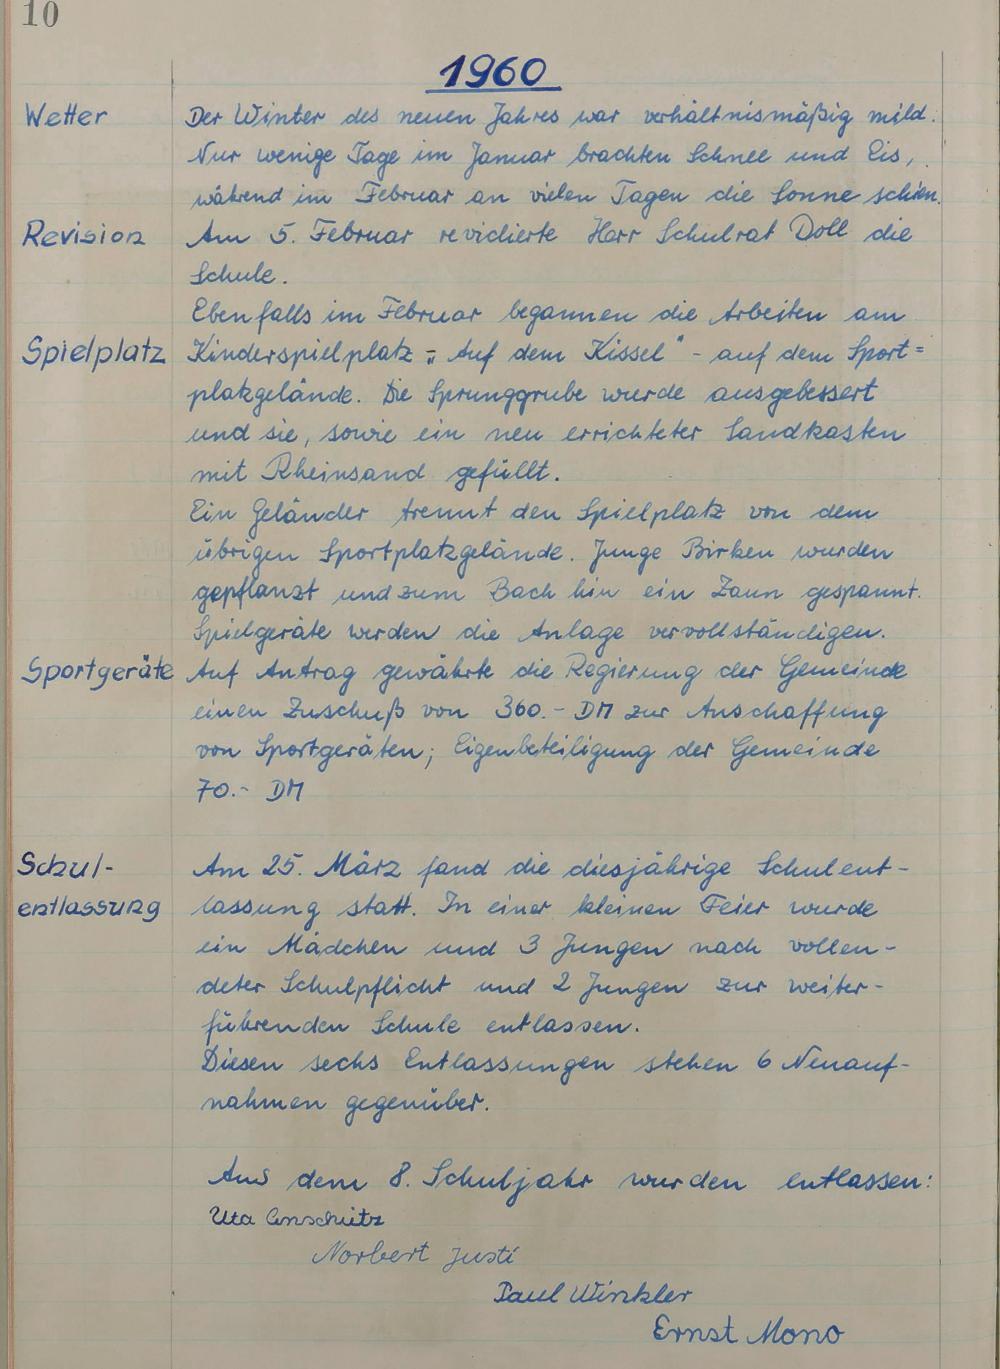 10
1960
Wetter Der Winter des neuen Jahres war verhältnismäßig mild.
Nur wenige Tage im Januar brachten Schnee und Eis,
während im Februar an vielen Tagen die Sonne schien.
Revision Am 5. Februar revidierte Herr Schulrat Doll die
Schule.
Ebenfalls im Februar begannen die Arbeiten am
Spielplatz Kinderspielplatz „Auf dem Kissel" - auf dem Sport=
platzgelände. Die Sprunggrube wurde ausgebessert
und sie, sowie ein neu errichteter Sandkasten
mit Rheinsand gefüllt.
Ein Geländer trennt den Spielplatz von dem
übrigen Sportplatzgelände. Junge Birken wurden
gepflanzt und zum Bach hin ein Zaun gespannt.
Spielgeräte werden die Anlage vervollständigen.
Sportgeräte Auf Antrag gewährte die Regierung der Gemeinde
einen Zuschuß von 360.- DM zur Anschaffung
von Sportgeräten; Eigenbeteiligung der Gemeinde
70.- DM
Schul- Am 25. März fand die diesjährige Schulent-
entlassung lassung statt. In einer kleinen Feier wurde
ein Mädchen und 3 Jungen nach vollen-
deter Schulpflicht und 2 Jungen zur weiter-
führenden Schule entlassen.
Diesen sechs Entlassungen stehen 6 Neuauf-
nahmen gegenüber.
Aus dem 8. Schuljahr wurden entlassen:
Uta Anschütz
Norbert Justi
Paul Winkler
Ernst Mono